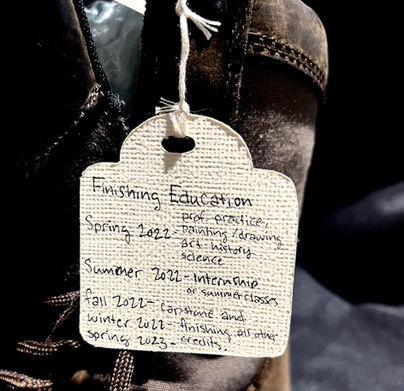 Finishing Education
Spring 2022 - prof. practice,
painting/drawing
art history
science
Summer 2022 - Internship
or summer classes
fall 2022 - capstone and
winter 2022 - finishing all other
spring 2023 - credits